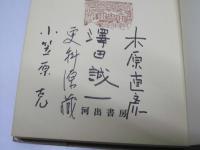 木原直彦
澤田誠一
更科源蔵
小笠原克
河出書房